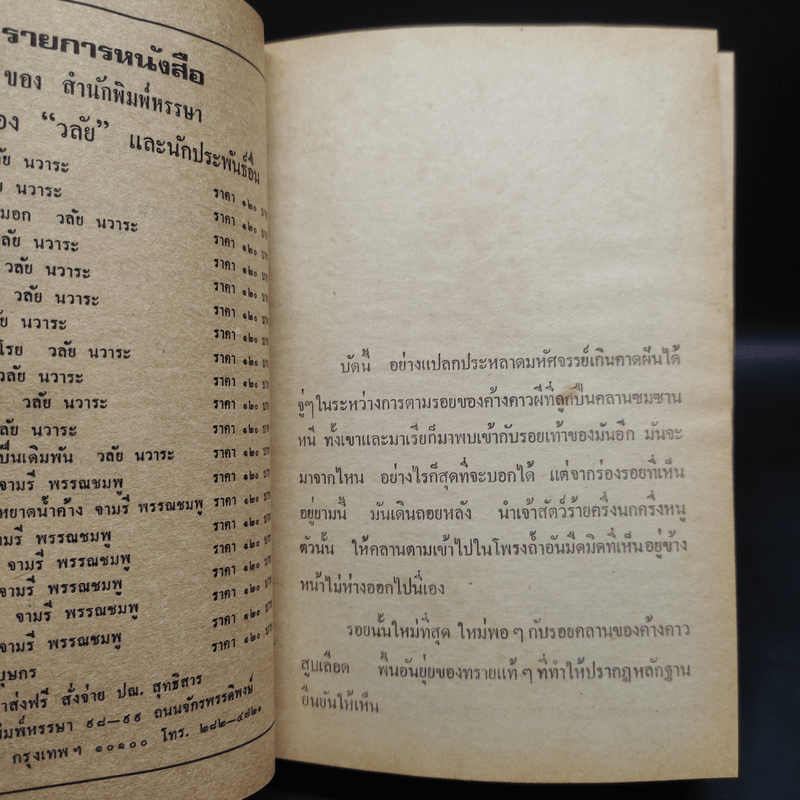 รายการหนังสือ
ของ สำนักพิมพ์หรรษา
“วลัย” และนักประพันธ์อื่น
นวาระ ราคา ๑๒๐
นวาระ ราคา ๑๒๐
วลัย นวาระ ราคา ๑๒๐
นวาระ ราคา ๑๒๐
วลัย นวาระ ราคา ๑๒๐
วลัย นวาระ ราคา ๑๒๐
นวาระ ราคา ๑๒๐
วลัย นวาระ ราคา ๑๒๐
วลัย นวาระ ราคา ๑๒๐
วลัย นวาระ ราคา ๑๒๐
นวาระ ราคา ๑๒๐
วลัย นวาระ ราคา ๑๒๐
จามรี พรรณชมพู ราคา ๑๒๐
หยาดน้ำค้าง จามรี พรรณชมพู ราคา ๑๒๐
พรรณชมพู ราคา ๑๒๐
จามรี พรรณชมพู ราคา ๑๒๐
จามรี พรรณชมพู ราคา ๑๒๐
จามรี พรรณชมพู ราคา ๑๒๐
จามรี พรรณชมพู ราคา ๑๒๐
ส่งฟรี สั่งจ่าย ปณ. สุทธิสาร
หรรษา ๙๘–๙๙ ถนนจักรพรรดิพงษ์
กรุงเทพฯ ๑๐๑๐๐ โทร. ๒๘๒–๔๗๒๑
บัดนี้ อย่างแปลกประหลาดมหัศจรรย์เกินคาดฝันได้
จู่ๆ ในระหว่างการตามรอยของค้างคาวผีที่ถูกปืนคลานซมซาน
หนี ทั้งเขาและมาเรียก็มาพบเข้ากับรอยเท้าของมันอีก มันจะ
มาจากไหน อย่างไรก็สุดที่จะบอกได้ แต่จากร่องรอยที่เห็น
อยู่ยามนี้ มันเดินถอยหลัง นำเจ้าสัตว์ร้ายครึ่งนกครึ่งหนู
ตัวนั้น ให้คลานตามเข้าไปในโพรงถ้ำอันมืดมิดที่เห็นอยู่ข้าง
หน้าไม่ห่างออกไปนี้เอง
รอยนั้นใหม่ที่สุด ใหม่พอๆ กับรอยคลานของค้างคาว
สูบเลือด พื้นอันยุ่ยของทรายแท้ๆ ที่ทำให้ปรากฏหลักฐาน
ยืนยันให้เห็น